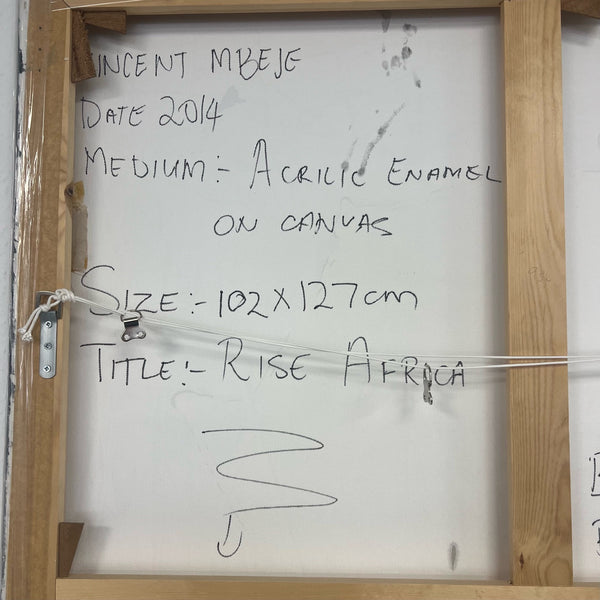 VINCENT MBEJE
DATE 2014
MEDIUM:- ACRILIC ENAMEL
ON CANVAS
SIZE:- 102 X 127cm
TITLE:- RISE AFRICA